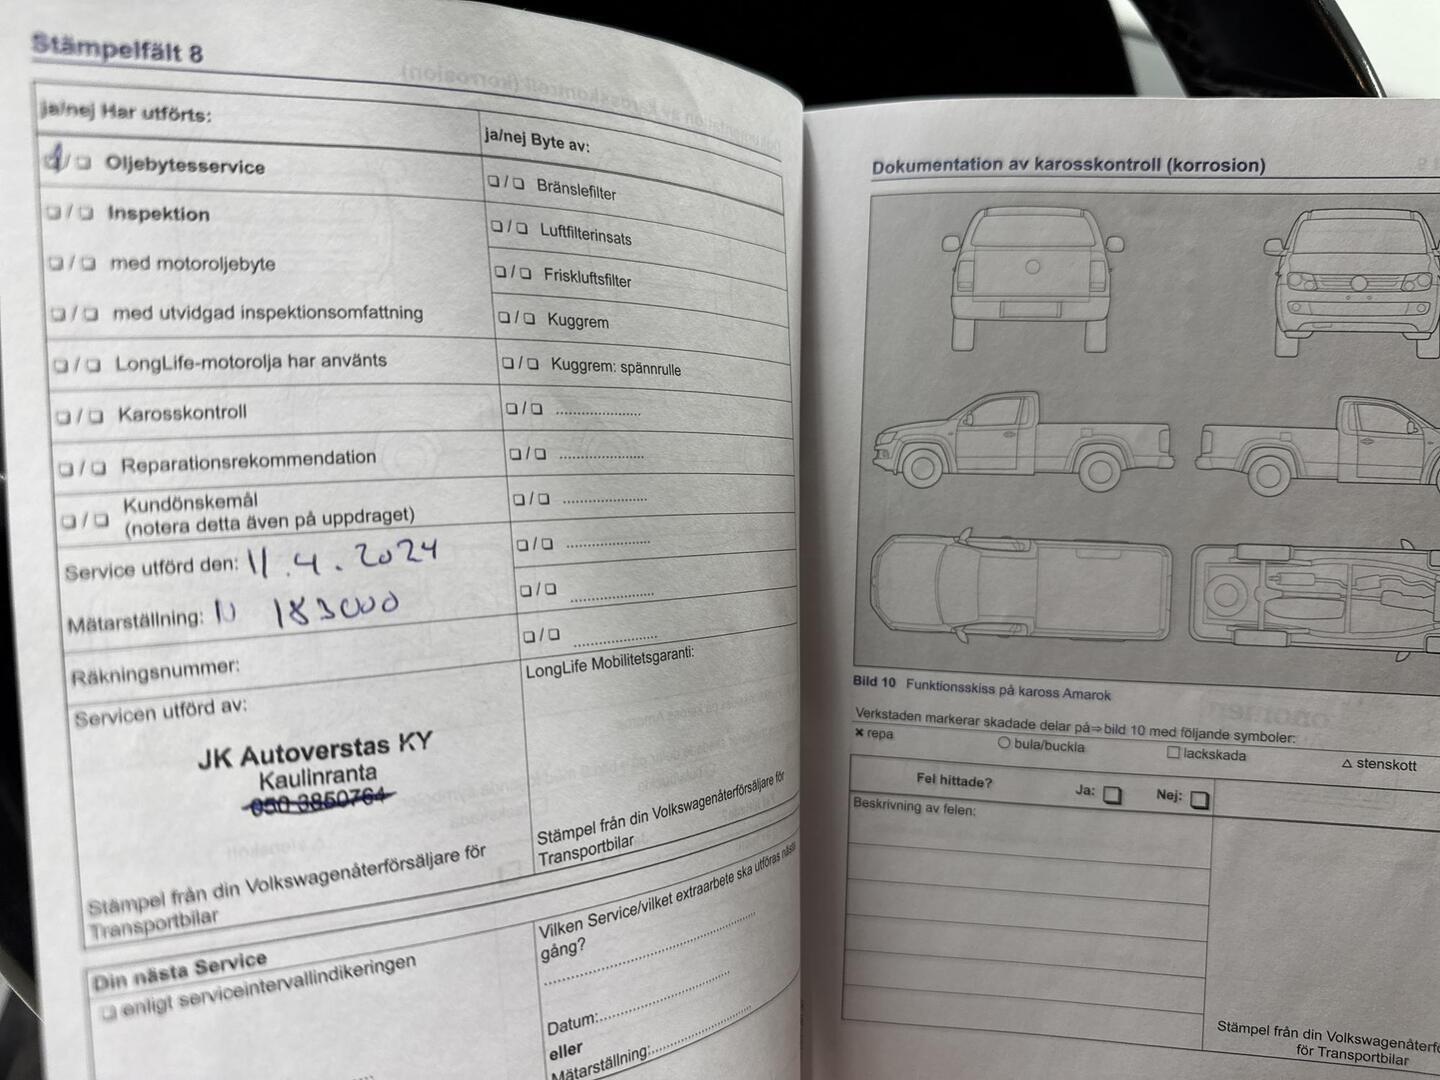 Stämpelfält 8
ja/nej Har utförts:
❏/❏ Oljebytesservice
❏/❏ Inspektion
❏/❏ med motoroljebyte
❏/❏ med utvidgad inspektionsomfattning
❏/❏ LongLife-motorolja har använts
❏/❏ Karosskontroll
❏/❏ Reparationsrekommendation
❏/❏ Kundönskemål
(notera detta även på uppdraget)
Service utförd den: 11.4.2024
Mätarställning: 183000
Räkningsnummer:
Servicen utförd av:
JK Autoverstas KY
Kaulinranta
050 3850764
Stämpel från din Volkswagenåterförsäljare för
Transportbilar
ja/nej Byte av:
❏/❏ Bränslefilter
❏/❏ Luftfilterinsats
❏/❏ Friskluftsfilter
❏/❏ Kuggrem
❏/❏ Kuggrem: spännrulle
❏/❏ .....................
❏/❏ .....................
❏/❏ .....................
❏/❏ .....................
❏/❏ .....................
❏/❏ .....................
LongLife Mobilitetsgaranti:
Stämpel från din Volkswagenåterförsäljare för
Transportbilar
Din nästa Service
❏ enligt serviceintervallindikeringen
Vilken Service/vilket extraarbete ska utföras nästa
gång?
Datum:
eller
Mätarställning:
Dokumentation av karosskontroll (korrosion)
Bild 10 Funktionsskiss på kaross Amarok
Verkstaden markerar skadade delar på⇒bild 10 med följande symboler:
× repa ○ bula/buckla □ lackskada △ stenskott
Fel hittade? Ja: ❏ Nej: ❏
Beskrivning av felen:
Stämpel från din Volkswagenåterfö
för Transportbilar